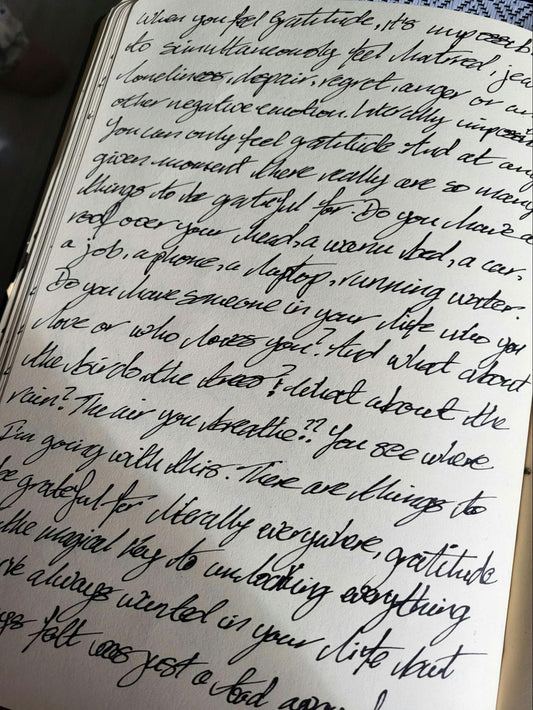 When you feel gratitude, it's impossib
to simultaneously feel hatred, jea
loneliness, despair, regret, anger or an
other negative emotion. Literally impossi
You can only feel gratitude. And at any
given moment there really are so many
things to be grateful for. Do you have a
roof over your head, a warm bed, a car,
a job, a phone, a laptop, running water?
Do you have someone in your life who you
love or who loves you? And what about
the birds, the trees? What about the
rain? The air you breathe?? You see where
I'm going with this. There are things to
be grateful for literally everywhere, gratitude
the magical key to unlocking everything
've always wanted in your life but
gs felt was just a tad